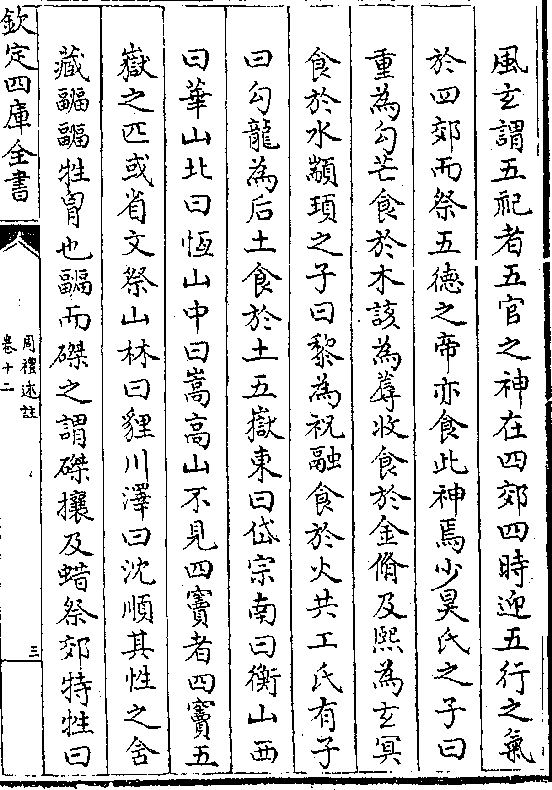 風玄謂五祀者五官之神在四郊四時迎五行之氣
於四郊而祭五德之帝亦食此神焉少昊氏之子曰
重為勾芒食於木該為蓐收食於金脩及熙為玄冥
食於水顓頊之子曰黎為祝融食於火共工氏有子
曰勾龍為后土食於土五嶽東曰岱宗南曰衡山西
曰華山北曰恆山中曰嵩高山不見四竇者四竇五
嶽之匹或省文祭山林曰貍川澤曰沈順其性之舍
藏疈疈牲胷也疈而磔之謂磔攘及蜡祭郊特牲曰
欽定四庫全書
周禮述註
卷十二
三